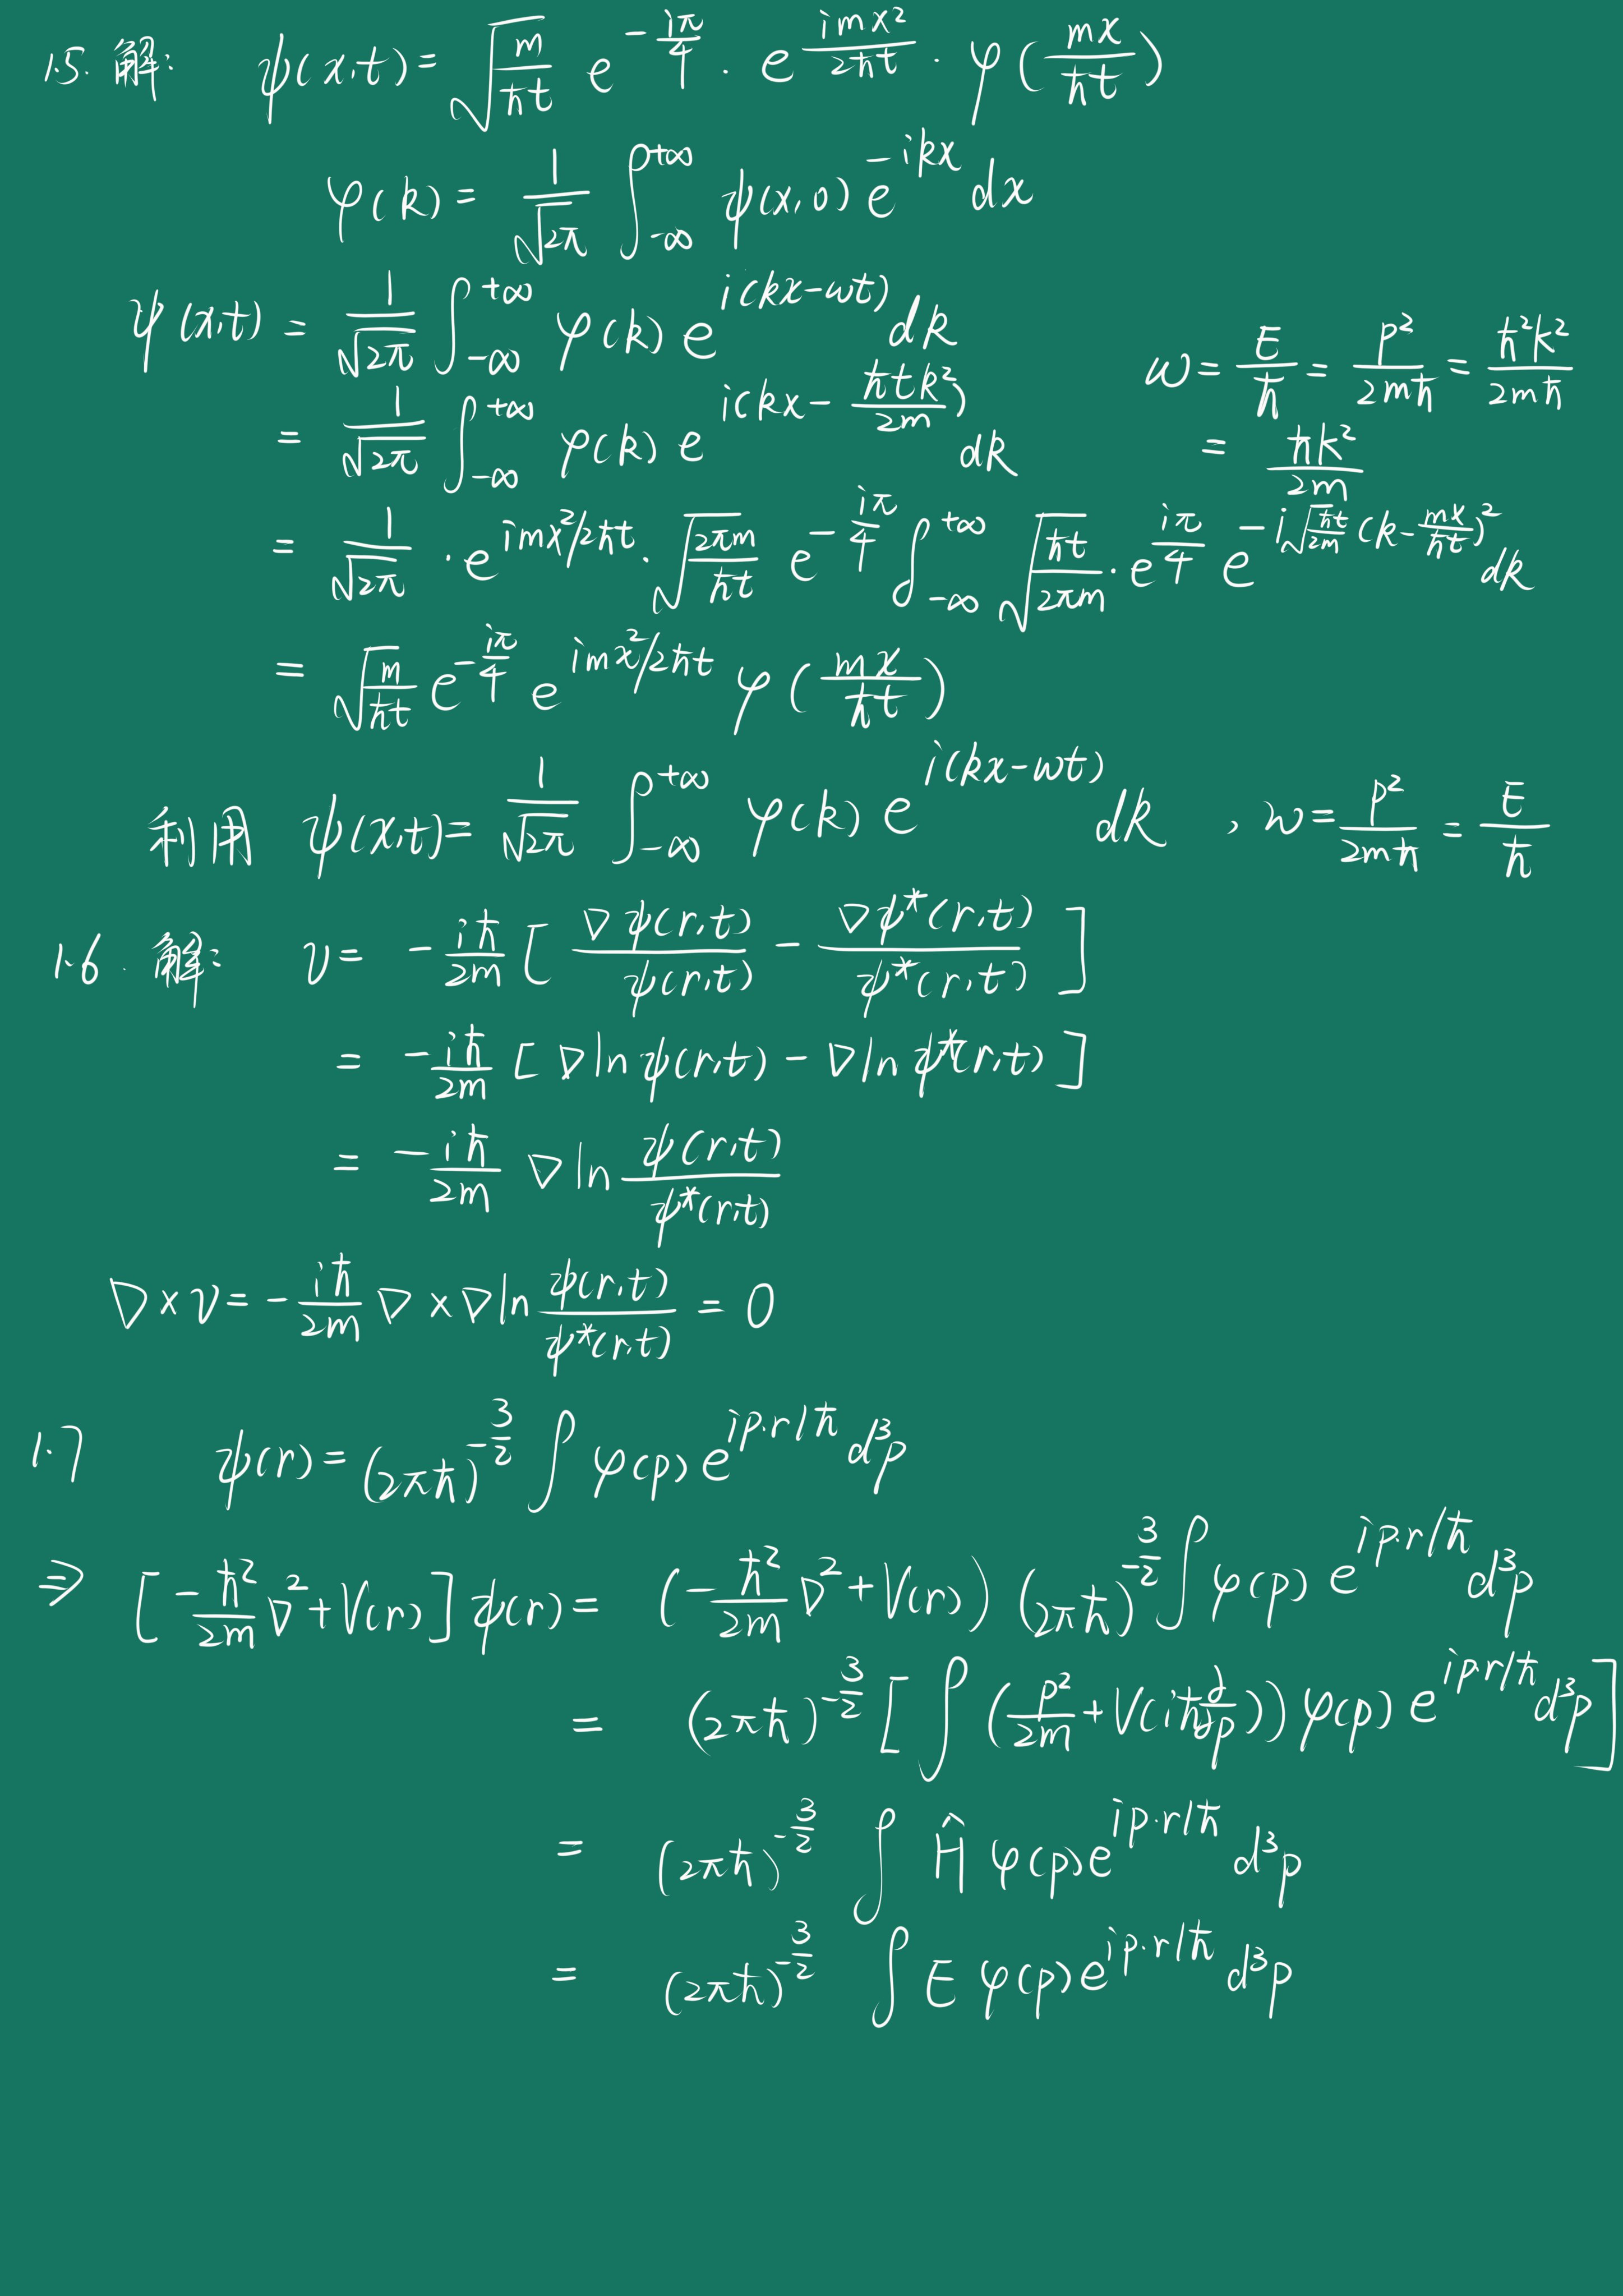 1.5. 解: ψ(x,t) = √(m/ħt) e^{-iπ/4} · e^{imx²/2ħt} · φ(mx/ħt)
φ(k) = 1/√2π ∫_{-∞}^{+∞} ψ(x,0) e^{-ikx} dx
ψ(x,t) = 1/√2π ∫_{-∞}^{+∞} φ(k) e^{i(kx-ωt)} dk ω = E/ħ = p²/2mħ = ħ²k²/2mħ
= 1/√2π ∫_{-∞}^{+∞} φ(k) e^{i(kx - ħtk²/2m)} dk = ħk²/2m
= 1/√2π · e^{imx²/2ħt} · √(2πm/ħt) e^{-iπ/4} ∫_{-∞}^{+∞} √(ħt/2πm) · e^{iπ/4} e^{-i√(ħt/2m) (k - mx/ħt)²} dk
= √(m/ħt) e^{-iπ/4} e^{imx²/2ħt} φ(mx/ħt)
利用 ψ(x,t) = 1/√2π ∫_{-∞}^{+∞} φ(k) e^{i(kx-ωt)} dk , ω = p²/2mħ = E/ħ
1.6. 解: v = -iħ/2m [ ∇ψ(r,t)/ψ(r,t) - ∇ψ*(r,t)/ψ*(r,t) ]
= -iħ/2m [ ∇ln ψ(r,t) - ∇ln ψ*(r,t) ]
= -iħ/2m ∇ ln ψ(r,t)/ψ*(r,t)
∇×v = -iħ/2m ∇×∇ln ψ(r,t)/ψ*(r,t) = 0
1.7 ψ(r) = (2πħ)^{-3/2} ∫ φ(p) e^{ip·r/ħ} d³p
⇒ [-ħ²/2m ∇² + V(r)] ψ(r) = (-ħ²/2m ∇² + V(r)) (2πħ)^{-3/2} ∫ φ(p) e^{ip·r/ħ} d³p
= (2πħ)^{-3/2} [∫ (p²/2m + V(iħ ∂/∂p)) φ(p) e^{ip·r/ħ} d³p]
= (2πħ)^{-3/2} ∫ Ĥ φ(p) e^{ip·r/ħ} d³p
= (2πħ)^{-3/2} ∫ E φ(p) e^{ip·r/ħ} d³p